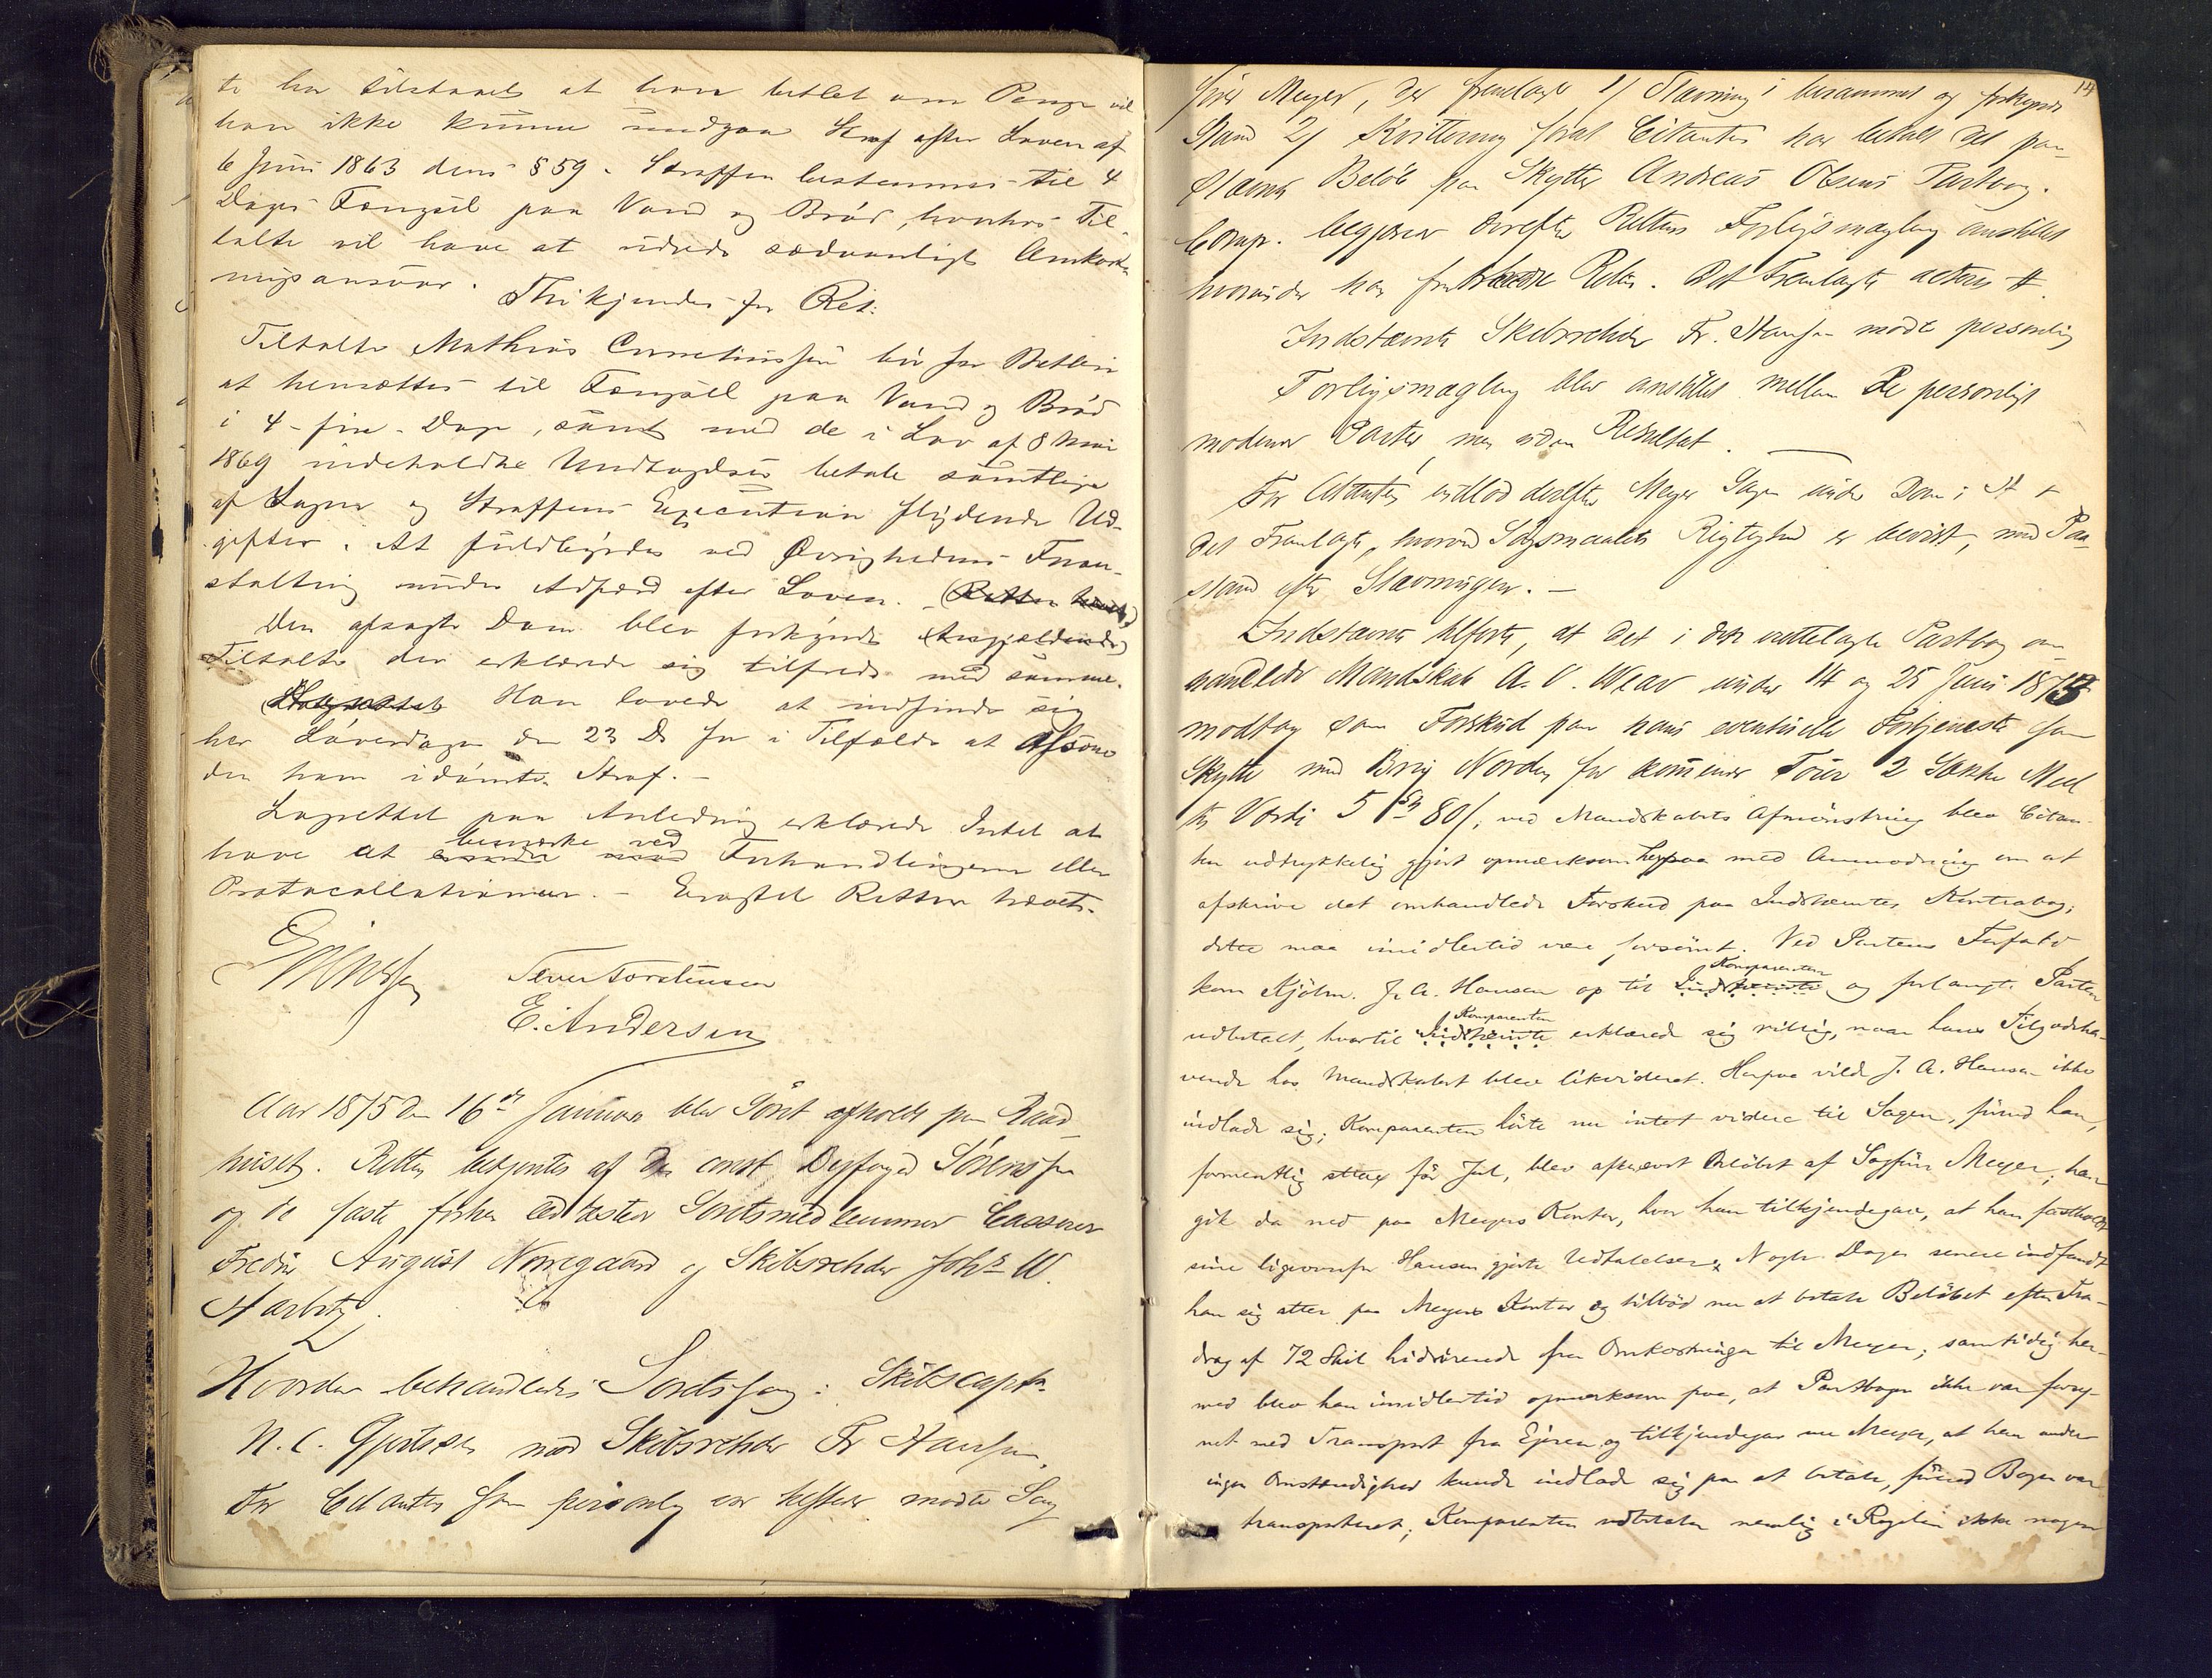 te har tilstaaet at have betlet om Penge vil
han ikke kunne undgaa Straf efter Loven af
6 Juni 1863 dens § 59. Straffen bestemmes til 4
Dages Fængsel paa Vand og Brød, hvorhos Til-
talte vil have at udrede sædvanligt Omkost-
ningsansvar.
Thi kjendes for Ret:
Tiltalte Mathias bør for Betleri
at hensættes til Fængsel paa Vand og Brød
i 4 - fire - Dage, samt med de i Lov af 8 Mai
1869 indeholdte Undtagelser betale samtlige
af Sagen og Straffens Execution flydende Ud-
gifter. At fuldbyrdes ved Øvrighedens Foran-
staltning under Adfærd efter Loven. (Retten hævet)
Den afsagte Dom blev forkyndt (Angjældende)
Tiltalte der erklærede sig tilfreds med samme.
Han lovede at indfinde sig
her Løverdagen den 23 D. for i Tilfælde at afsone
den ham idømte Straf. -
Lagrettet paa Anledning erklærede Intet at
have at bemærke ved Forhandlingerne eller
Protocollationen. - Ersagtet Retten hævet.
Tever Torstensen
E. Andersen
Aar 1875 den 16de Januar blev Søret afholdt paa Raad-
huset. Retten betjentes af den const. Byfoged Sørensen
og de faste forhen edfæstede Søretsmedlemmer Casserer
Fredrik August Norregaard og Skibsrheder Johs W.
Aarbity.
Hvorda behandledes Søretssag: Skibscapt.
N. C. Gjertsen mod Skibsrheder Fr Hansen.
For Citanten som personlig var tilstede mødte Sag-
14
fører Meyer, der fremlagde 1/ Stævning i berammet og forkyndt
Stand 2/ Kvittering for at Citanten har betalt det paa-
stævnte Beløb paa Skytter Andreas Olsens Partbog.
Comp. begjærer derefter Rettens Forligsmægling anstillet
hvorunder han fratraadte Retten. Det Fremlagte acteres #.
Indstævnte Skibsrheder Fr. Hansen mødte personlig
Forligsmægling blev anstillet mellem De personligt
mødende Parter, men uden Resultat.
For Citanten indlod derefter Meyer Sagen under Dom i H t
det Fremlagte, hvorved Søgsmaalets Rigtighed er bevist, med Paa-
stand efter Stævningen. -
Indstævnte tilførte, at det i den rettelagte Partbog om-
handlede Mandskab A. O. Wear under 14 og 25 Juni 1873
modtog som Forskud paa hans eventuelle Fortjeneste som
Skytte med Brig Norden for kommende Tour 2 Sække Meel
til Værdi 5 Sp 80 /, ved Mandskabets Afmønstring blev Citan-
ten udtrykkelig gjort opmærksom herpaa med Anmodning om at
afskrive det omhandlede Forskud paa Indstævntes Kontrabog;
dette maa imidlertid være forsømt. Ved Partens Forfald
kom Kjøbm. J. A. Hansen op til Indstævnte Komparenten og forlangte Parten
udbetalt, hvortil Indstævnte Komparenten erklærede sig villig, naar hans Tilgodeha-
vende hos Mandskabet blev likvideret. Herpaa vilde J. A. Hansen ikke
indlade sig; Komparenten hørte nu intet videre til Sagen, førend han,
formentlig før Jul, blev afkrævet Beløbet af Sagfører Meyer; han
gik da ned paa Meyers Kontor, hvor han tilkjendegav, at han fastholdt
sine ligeoverfor Hansen gjorte Udtalelser. Nogle Dage senere indfandt
han sig atter paa Meyers Kontor og tilbød nu at betale Beløbet efter Fra-
drag af 72 Skil hidrørende fra Omkostninger til Meyer; samtidig her-
med blev han imidlertid opmærksom paa, at Partbogen ikke var forsy-
net med Transport fra Ejeren og tilkjendegav nu Meyer, at han under
ingen Omstændighed kunde indlade sig paa at betale, førend Bogen var
transporteret; Komparenten udbetaler nemlig i Regelen ikke nogen